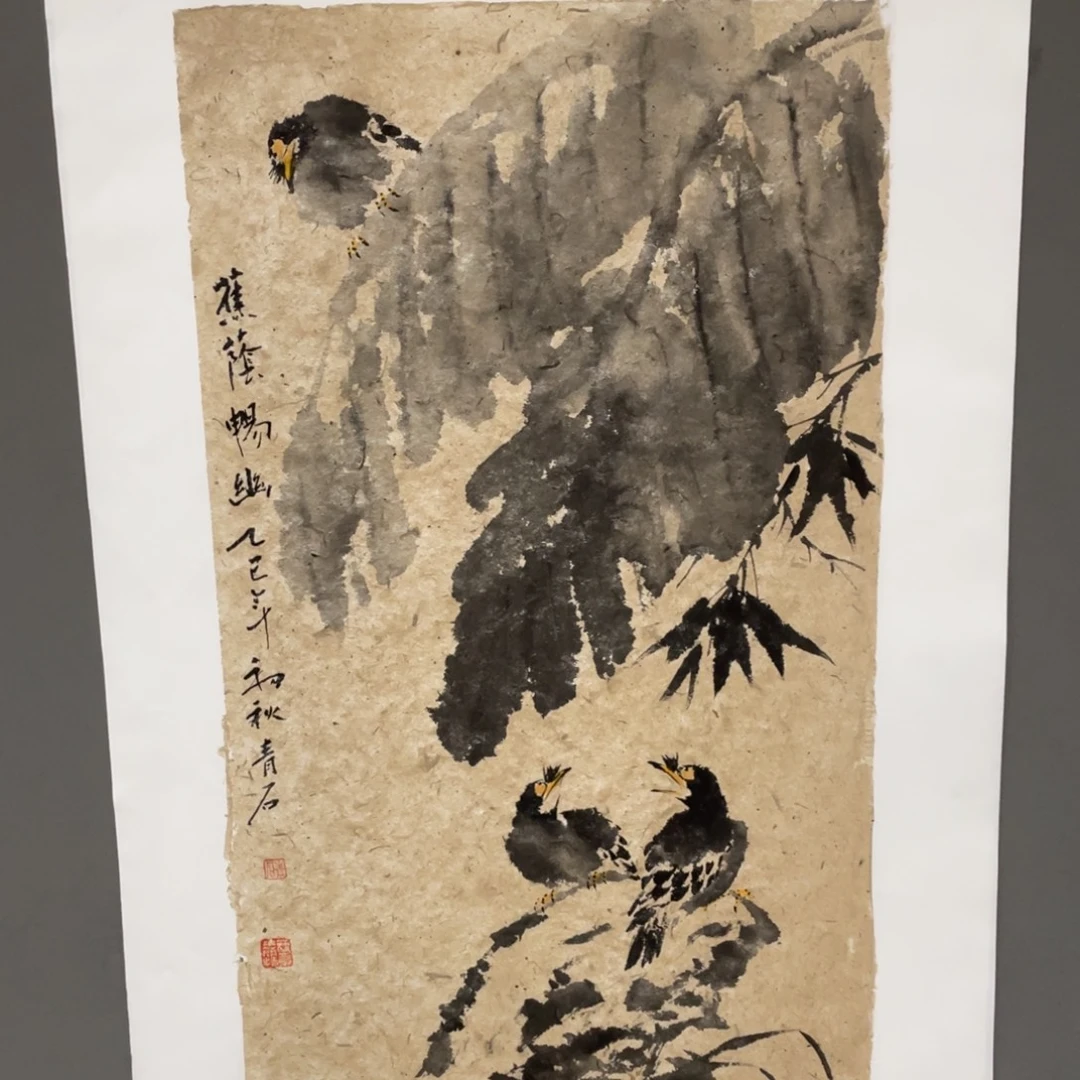 蕉蔭暢幽乙巳年初秋青石